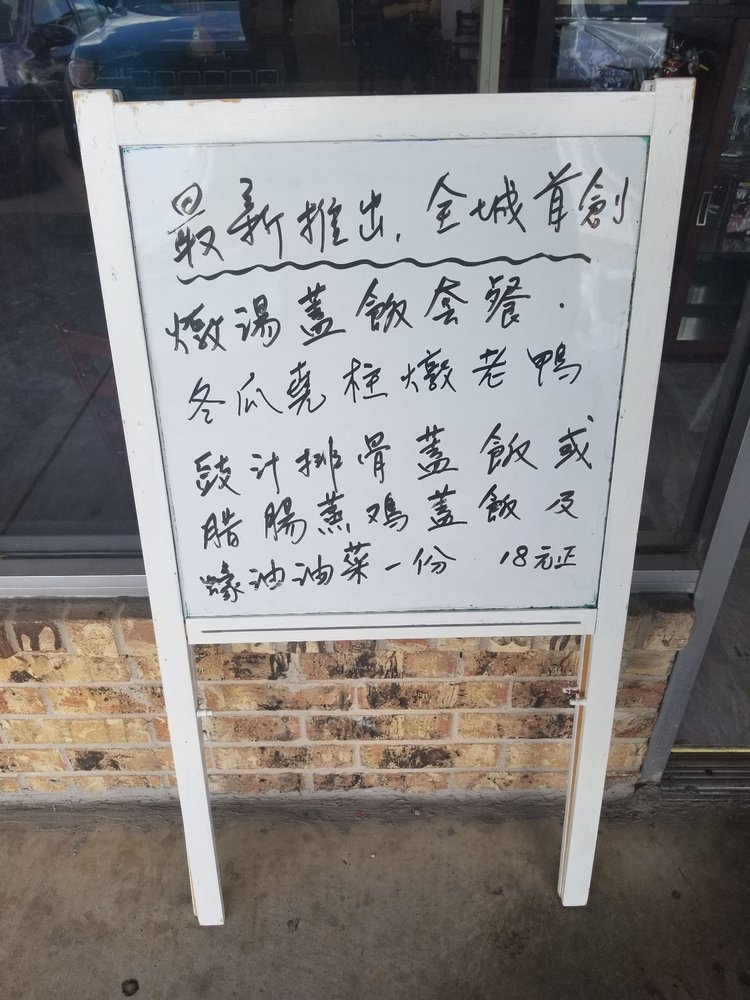 最新推出，全城首創
燉湯蓋飯套餐．
冬瓜堯柱燉老鴨
豉汁排骨蓋飯或
腊腸蒸鸡蓋飯及
蠔油油菜一份 18元正